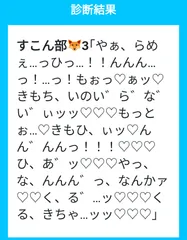 診断結果
すこん部🦊3「やぁ、らめ
ぇ…っひっ…！！んんん…
っ！…っ！もぉっ♡ぁッ♡
きもち、いのい゛ら゛な゛
い゛ぃッッ♡♡♡もっと
ぉ…♡きもひ、ぃッ♡ん
ん゛んんっ！！！♡♡♡
ひ、あ゛ッ♡♡♡やっ、
な、んんん゛っ、なんかァ
♡♡く、る゛…ッ♡♡♡く
る、きちゃ…ッッ♡♡♡」